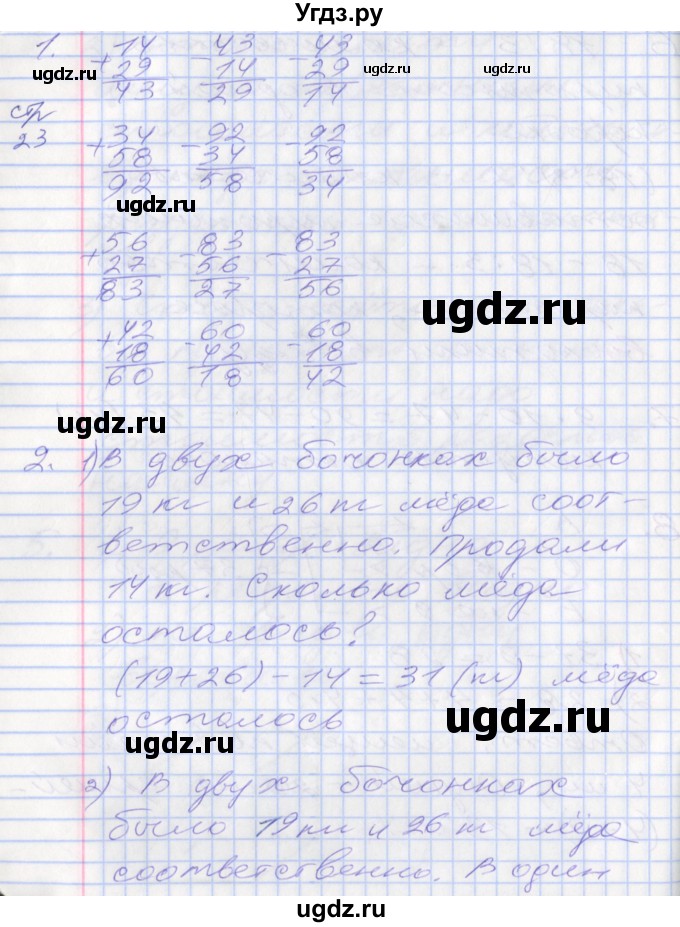 Угдз.ру
1. +14 -43 -43
29 14 29
43 29 14
ugdz.ru ugdz.ru ugdz.ru
стр
23
+34 -92 -92
58 34 58
92 58 34
ugdz.ru
+56 -83 -83
27 56 27
83 27 56
ugdz.ru
+42 -60 -60
18 42 18
60 18 42
ugdz.ru
2. 1) В двух бочонках было
19 кг и 26 кг мёда соот-
ветственно. Продали
14 кг. Сколько мёда
осталось?
(19+26)-14=31 (кг) мёда
осталось
ugdz.ru
ugdz.ru
2) В двух бочонках
было 19 кг и 26 кг мёда
соответственно. В один
ugdz.ru